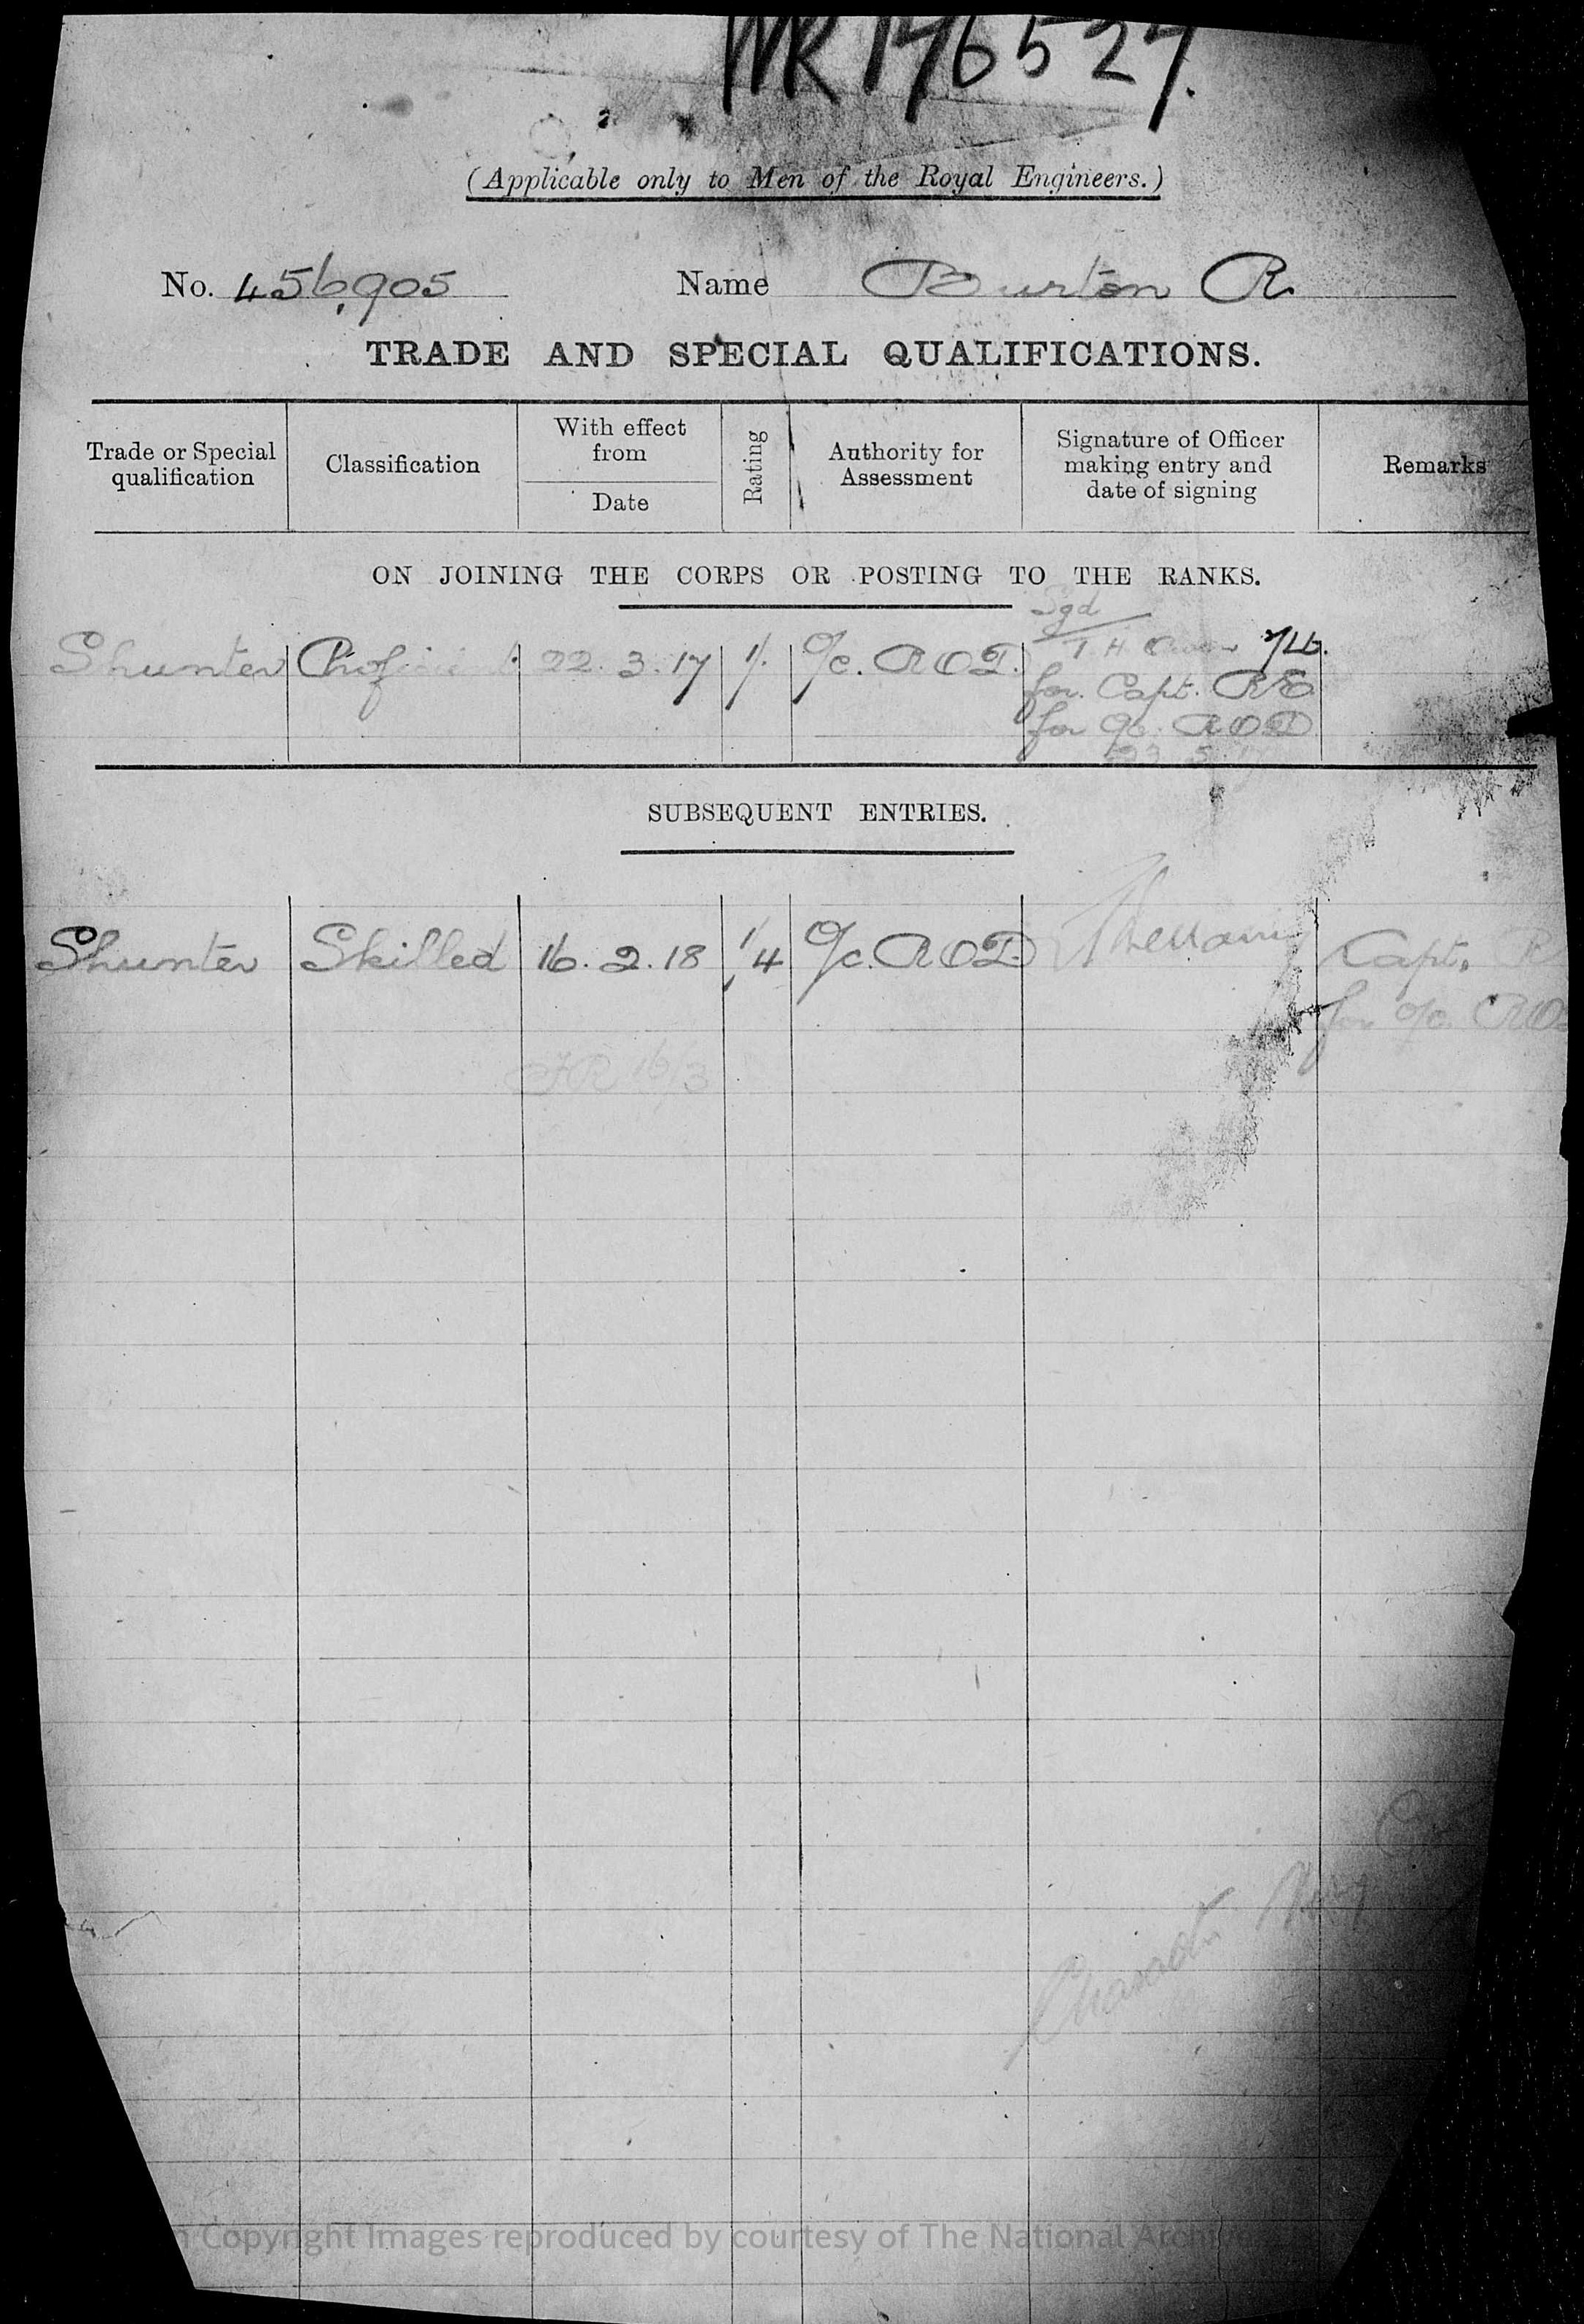 WR 176527.
(Applicable only to Men of the Royal Engineers.)
No. 456,905 Name Burton R.
TRADE AND SPECIAL QUALIFICATIONS.
Trade or Special qualification
Classification
With effect from
Date
Rating
Authority for Assessment
Signature of Officer making entry and date of signing
Remarks
ON JOINING THE CORPS OR POSTING TO THE RANKS.
Sgd
Shunter Proficient 22.3.17 1/. O/c. ROD. T H Owen
for. Capt. RE
for O/c. ROD
SUBSEQUENT ENTRIES.
Shunter Skilled 16.2.18 1/4 O/c. ROD Capt. R
for O/c. RO
16/3
Character Very
Copyright Images reproduced by courtesy of The National Archives